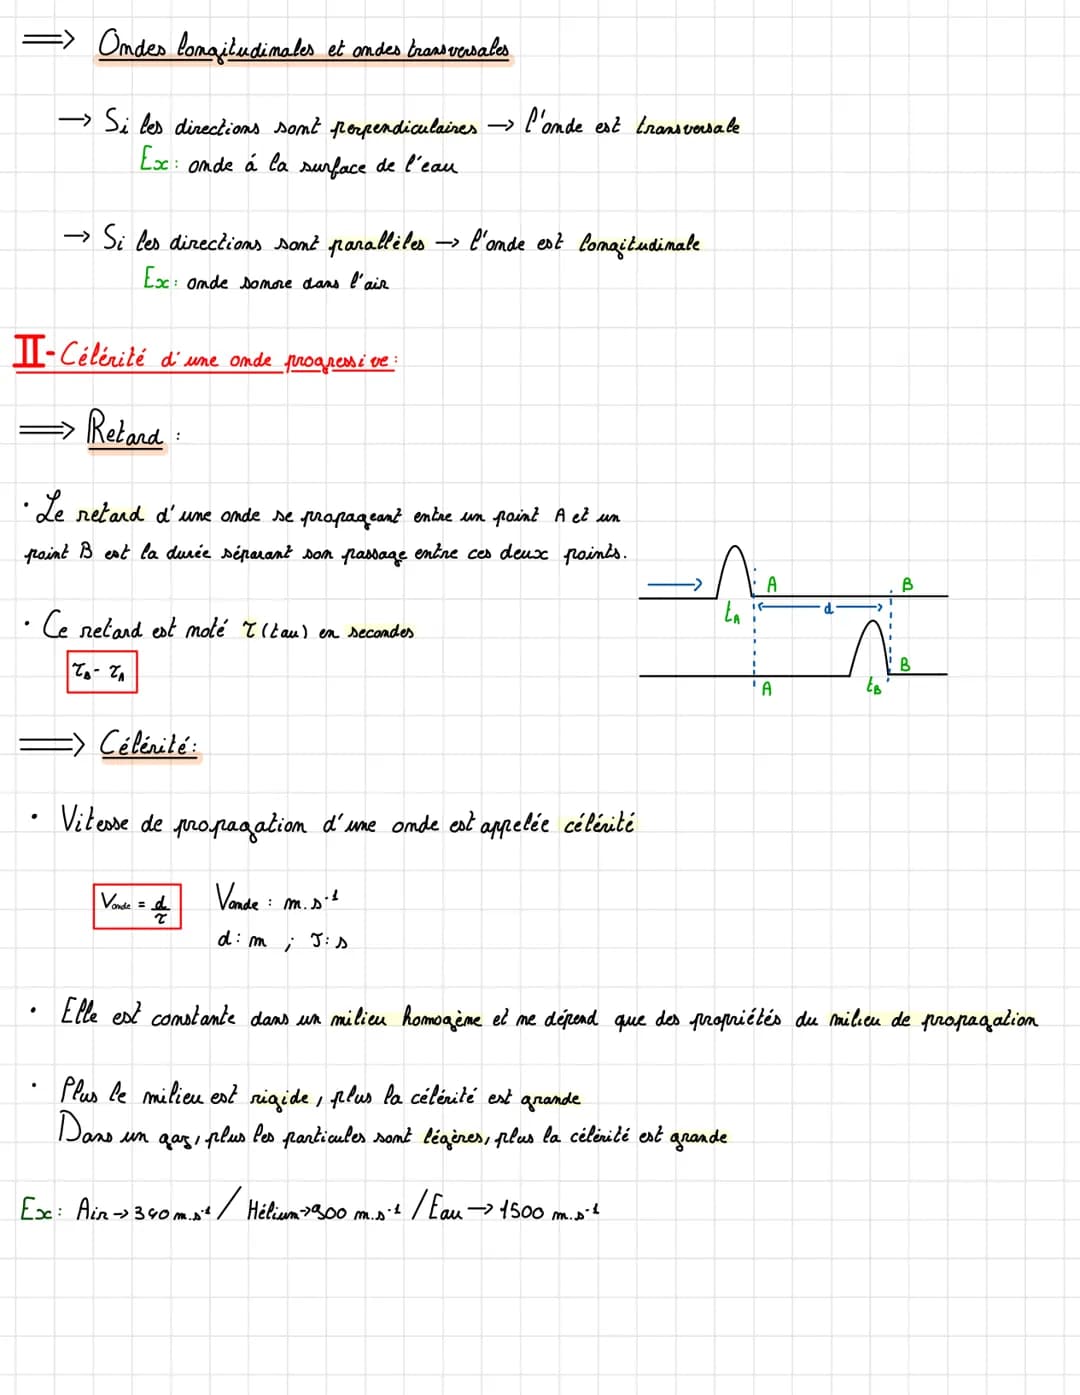 ⟹ Ondes longitudinales et ondes transversales
→ Si les directions sont perpendiculaires → l'onde est transversale
Ex : onde á la surface de l'eau
→ Si les directions sont parallèles → l'onde est longitudinale
Ex : onde sonore dans l'air
II- Célérité d'une onde progressive :
⟹ Retard :
· Le retard d'une onde se propageant entre un point A et un
point B est la durée séparant son passage entre ces deux points.
A B
tA d
· Ce retard est noté τ (tau) en secondes
τB - τA
B
A tB
⟹ Célérité :
· Vitesse de propagation d'une onde est appelée célérité
Vonde = d/τ
Vonde : m.s⁻¹
d : m ; τ : s
· Elle est constante dans un milieu homogène et ne dépend que des propriétés du milieu de propagation
· Plus le milieu est rigide, plus la célérité est grande
Dans un gaz, plus les particules sont légères, plus la célérité est grande
Ex : Air → 340 m.s⁻¹ / Hélium → 900 m.s⁻¹ / Eau → 1500 m.s⁻¹